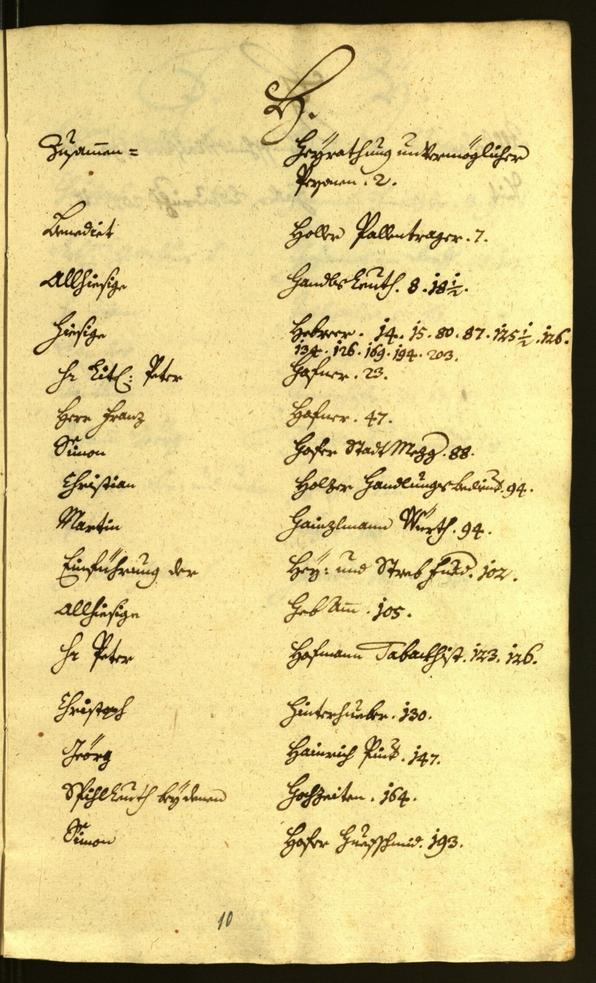 H.
Zusammen= Heÿrathung unvermöglicher
Persohnen. 2.
Benedict Holer Pallentrager. 7.
Allhiesige Handlsleuth. 8. 18½.
Hiesige Hebreer. 14. 15. 80. 87. 125½. 126.
134. 126. 169. 194. 203.
Hr Titl: Peter Hafner. 23.
Herr Franz Hafner. 47.
Simon Hofer Stadt Mezg. 88.
Christian Holzer Handlungsbedient. 94.
Martin Hainzlmann Würth. 94.
Einführung der Heÿ: und Streb fuxd. 102.
Allhiesige Heb Am̅. 105.
Hr Peter Hofmann Tabackhist. 123. 126.
Christoph Hinterhueber. 130.
Jeörg Hainrich Pint. 147.
Spihlleuth beÿ denen Hochzeiten. 164.
Simon Hofer Huefschmid. 193.
10